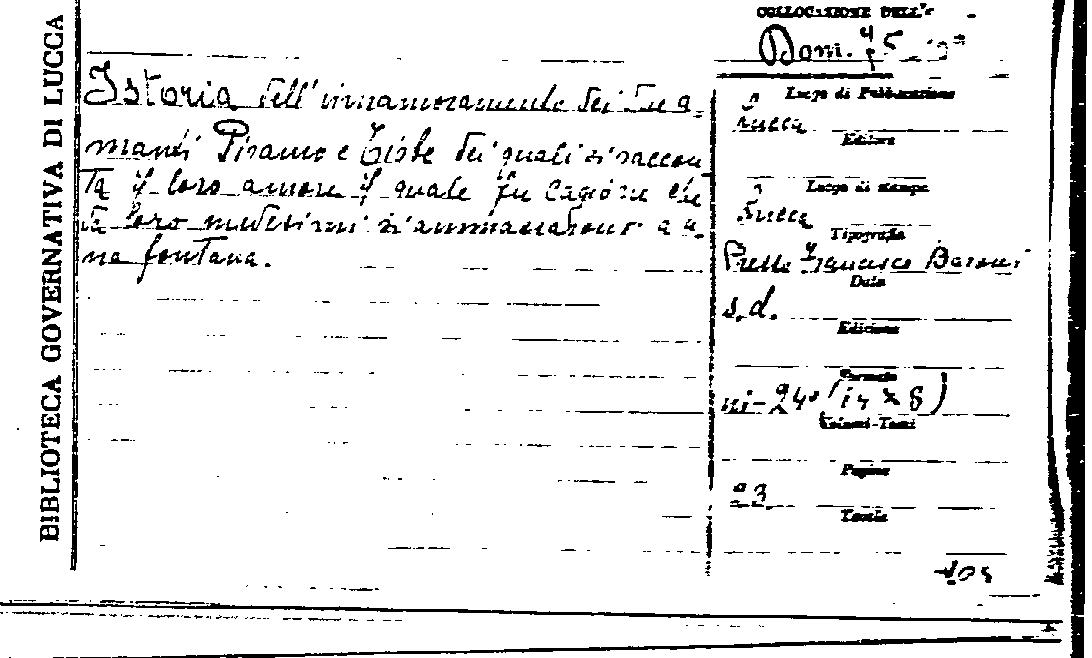 BIBLIOTECA GOVERNATIVA DI LUCCA
COLLOCAZIONE DELL'
Istoria dell'innamoramento dei due a-
manti Piramo e Tisbe dei quali si raccon
ta il loro amore il quale fu cagione che
da loro medesimi si ammazzassero a u-
na fontana.
Luogo di Pubblicazione
Lucca
Editore
Luogo di stampa
Lucca
Tipografia
Presso Francesco Baroni
Data
s.d.
Edizione
Formato
Volumi-Tomi
Pagine
Tavole